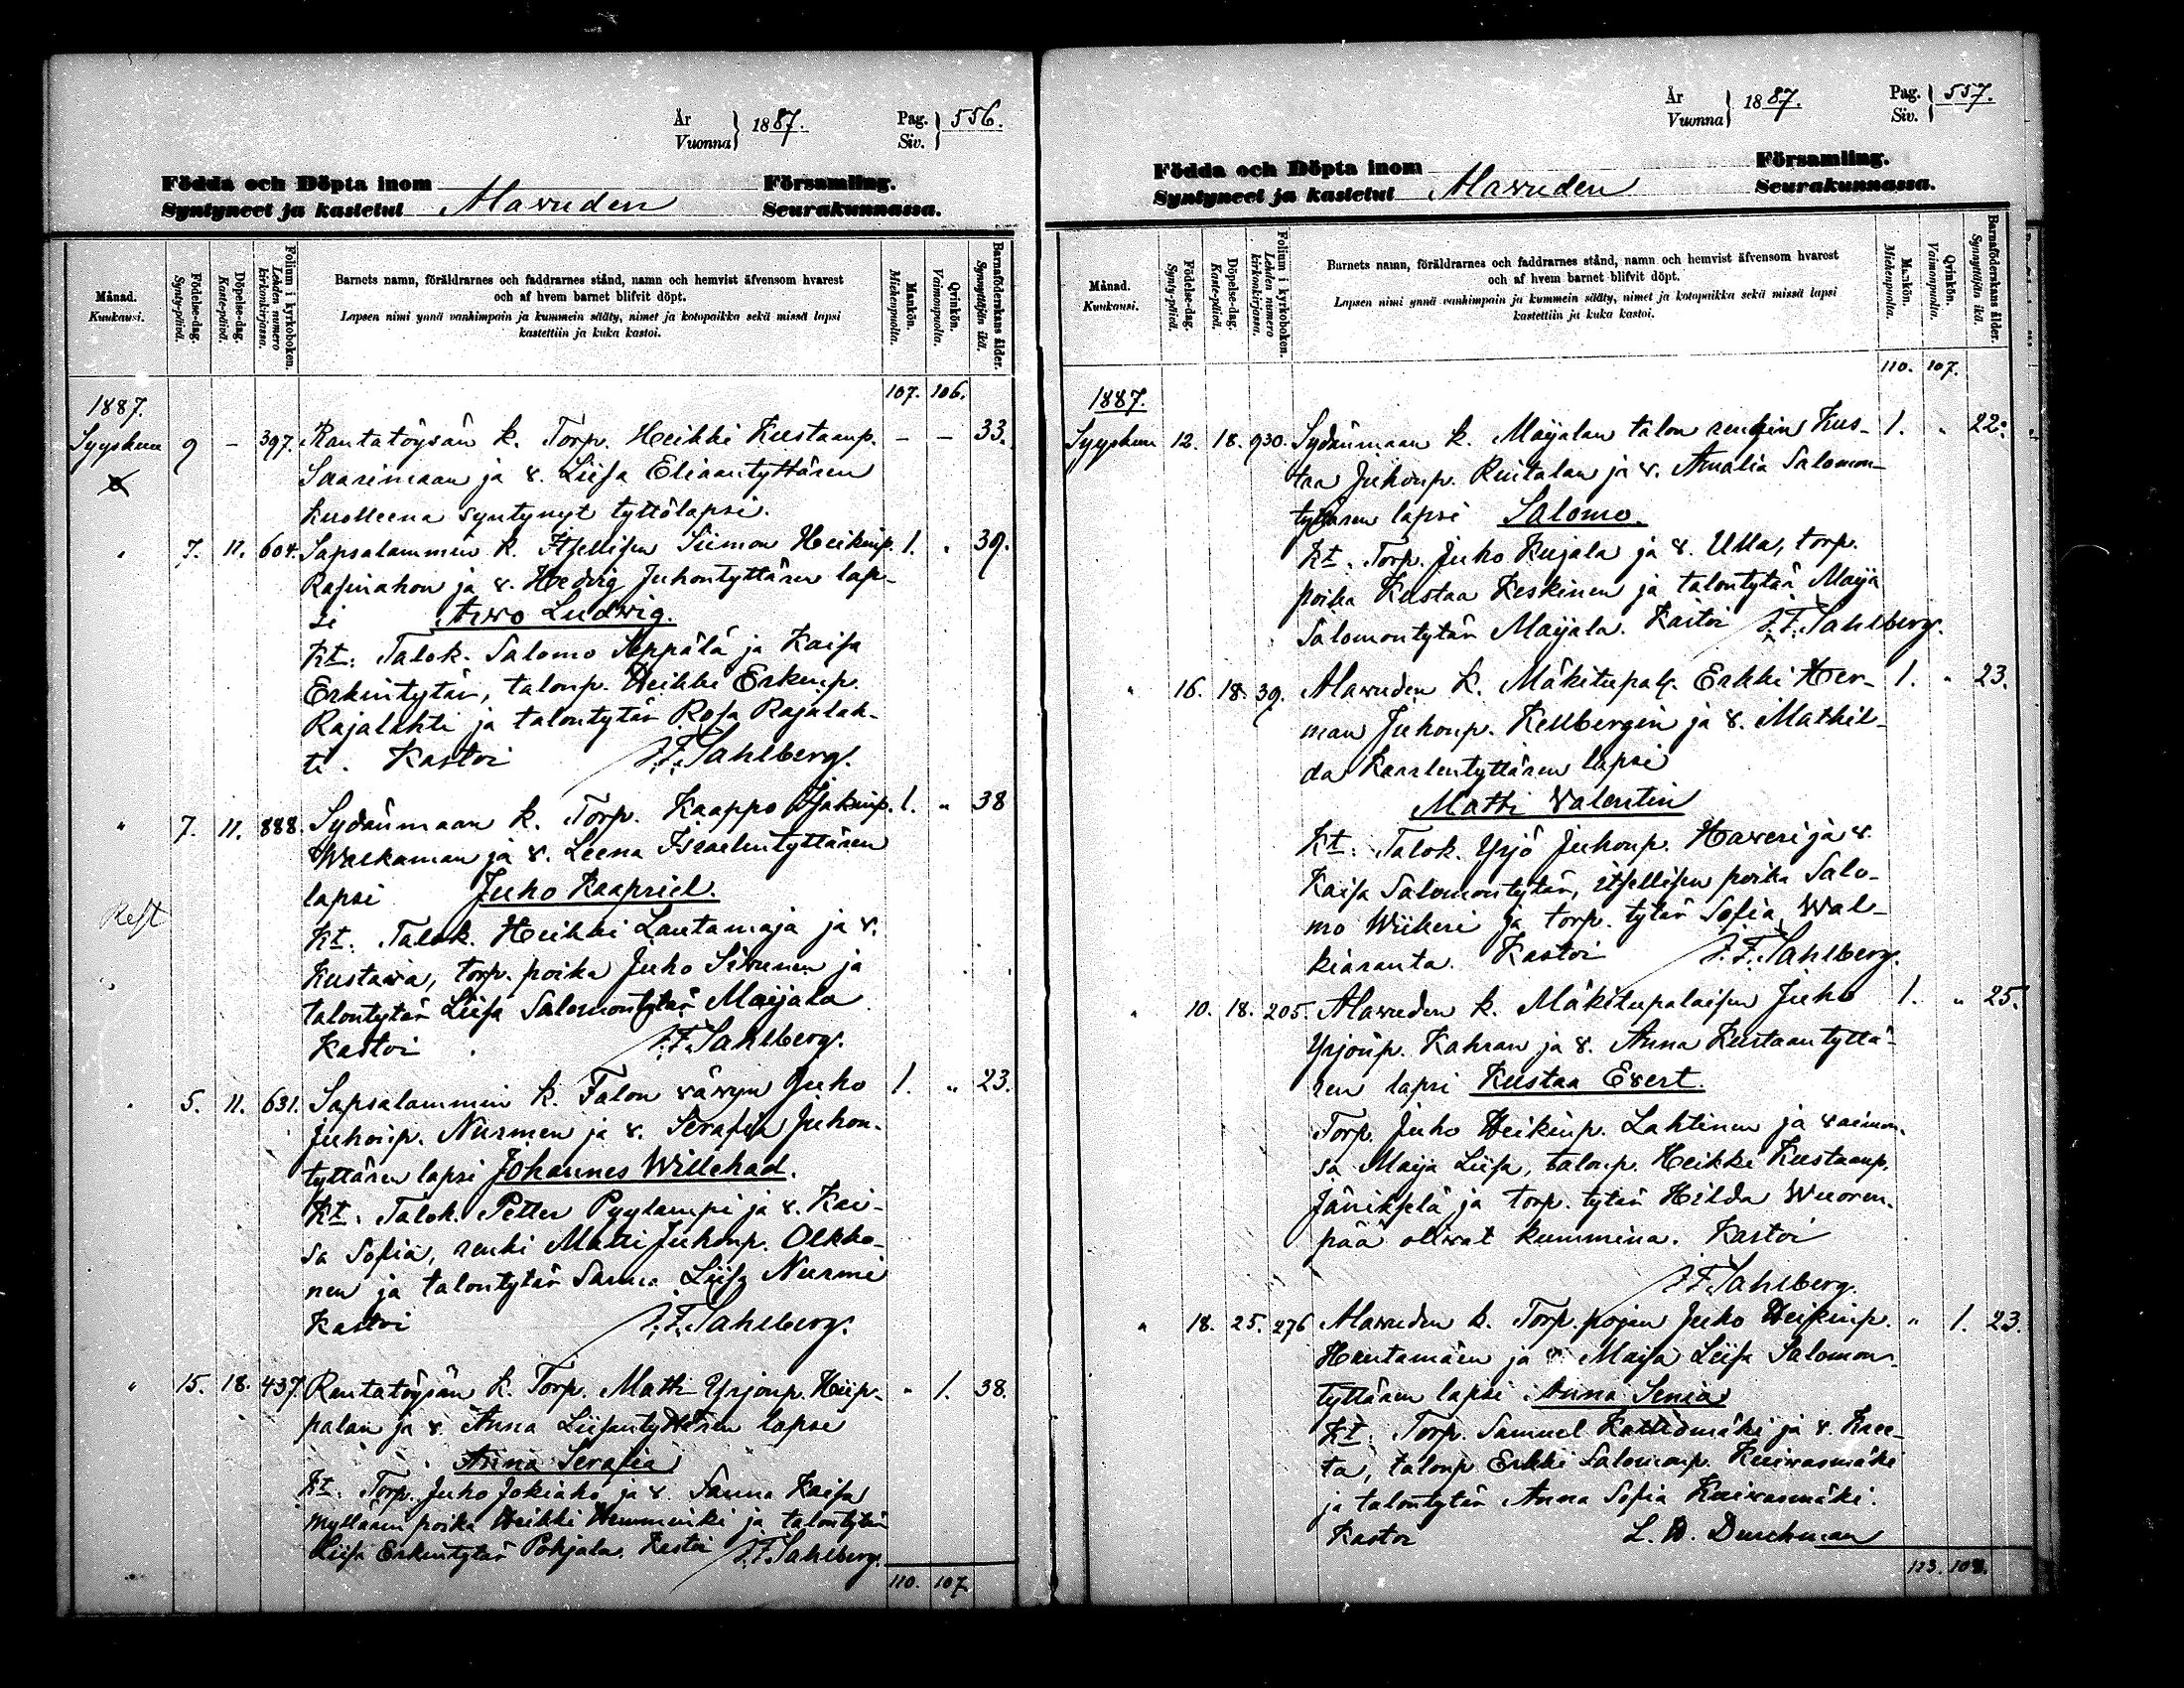 År
Vuonna } 1887.
Pag.
Siv. } 556.
Födda och Döpta inom Församling.
Syntyneet ja kastetut Alavuden Seurakunnassa.
Månad.
Kuukausi.
Födelse-dag.
Synty-päivä.
Döpelse-dag.
Kaste-päivä.
Folium i kyrkoboken.
Lehden numero kirkonkirjassa.
Barnets namn, föräldrarnes och faddrarnes stånd, namn och hemvist äfvensom hvarest
och af hvem barnet blifvit döpt.
Lapsen nimi ynnä vanhimpain ja kummein sääty, nimet ja kotopaikka sekä missä lapsi
kastettiin ja kuka kastoi.
Mankön.
Miehenpuolia.
Qvinkön.
Vaimonpuolia.
Barnaföderskans ålder.
Synnyttäjän ikä.
107. 106.
1887.
Syyskuu 9 – 397. Rantatöysän k. Torp. Heikki Kustaanp. – – 33.
Saarimaan ja v. Liisa Eliaantyttären
kuolleena syntynyt tyttölapsi.
" 7. 11. 604. Sapsalammin k. Itsellisen Siimon Heikinp. 1. " 39.
ja v. Hedvig Juhontyttären lap-
si Arvo Ludwig.
Kt: Talok. Salomo Seppälä ja Kaisa
Erkintytär, talonp. Heikki Erkinp.
Rajalahti ja talontytär Rosa Rajalah-
ti. Kastoi J. F. Sahlberg.
" 7. 11. 888. Sydänmaan k. Torp. Kaappo Isakinp. 1. " 38
ja v. Leena Israelintyttären
lapsi Juho Kaapriel.
Kt. Talok. Heikki Lautamaja ja v.
Kustava, torp. poika Juho Sivunen ja
talontytär Liisa Salomontytär Maijala
Kastoi J. F. Sahlberg.
" 5. 11. 631. Sapsalammin k. Talon vävyn Juho 1. " 23.
Juhonp. Nurmen ja v. Serafia Juhon-
tyttären lapsi Johannes Willehad.
Kt. Talok. Petter Pyylampi ja v. Kai-
sa Sofia, renki Matti Juhonp. Olkko-
nen ja talontytär Sanna Liisa Nurmi
Kastoi J. F. Sahlberg.
" 15. 18. 437. Rantatöysän k. Torp. Matti Yrjönp. Hiip- " 1. 38.
palan ja v. Anna Liisantyttären lapsi
Anna Serafia
Kt. Torp. Juho Jokiaho ja v. Sanna Kaisa
Myllärin poika Heikki Hemminki ja talontytär
Liisa Erkintytär Pohjala. Kastoi J. F. Sahlberg.
110. 107.
År
Vuonna } 1887.
Pag.
Siv. } 557.
Födda och Döpta inom Församling.
Syntyneet ja kastetut Alavuden Seurakunnassa.
Månad.
Kuukausi.
Födelse-dag.
Synty-päivä.
Döpelse-dag.
Kaste-päivä.
Folium i kyrkoboken.
Lehden numero kirkonkirjassa.
Barnets namn, föräldrarnes och faddrarnes stånd, namn och hemvist äfvensom hvarest
och af hvem barnet blifvit döpt.
Lapsen nimi ynnä vanhimpain ja kummein sääty, nimet ja kotopaikka sekä missä lapsi
kastettiin ja kuka kastoi.
Mankön.
Miehenpuolia.
Qvinkön.
Vaimonpuolia.
Barnaföderskans ålder.
Synnyttäjän ikä.
110. 107.
1887.
Syyskuu 12. 18. 930. Sydänmaan k. Maijalan talon rengin Kus- 1. " 22.
taa Juhonp. Rintalan ja v. Amalia Salomon-
tyttären lapsi Salomo.
Kt. Torp. Juho Kujala ja v. Ulla, torp.
poika Kustaa Keskinen ja talontytär Maija
Salomontytär Maijala. Kastoi J. F. Sahlberg.
" 16. 18. 39. Alavuden k. Mäkitupal. Erkki Her- 1. " 23.
man Juhonp. Kellbergin ja v. Mathil-
da Kaarlentyttären lapsi
Matti Valentin
Kt. Talok. Yrjö Juhonp. Haveri ja v.
Kaisa Salomontytär, itsellisen poika Salo-
mo Wiikeri ja torp. tytär Sofia Wal-
kiaranta. Kastoi J. F. Sahlberg.
" 10. 18. 205. Alavuden k. Mäkitupalaisen Juho 1. " 25.
Yrjönp. Kahran ja v. Anna Kustaantyttä-
ren lapsi Kustaa Evert.
Torp. Juho Heikinp. Lahtinen ja vaimon-
sa Maija Liisa, talonp. Heikki Kustaanp.
Jänikselä ja torp. tytär Hilda Wuoren-
pää olivat kummina. Kastoi
J. F. Sahlberg.
" 18. 25. 276 Alavuden k. Torp. pojan Juho Heikinp. " 1. 23.
Hautamäen ja v. Maija Liisa Salomon-
tyttären lapsi Anna Senia
Kt. Torp. Samuel ja v. Kree-
ta, talonp. Erkki Salomonp. Kuivasmäki
ja talontytär Anna Sofia Kuivasmäki.
Kastoi L. W. Durchman
113. 108.
Reft